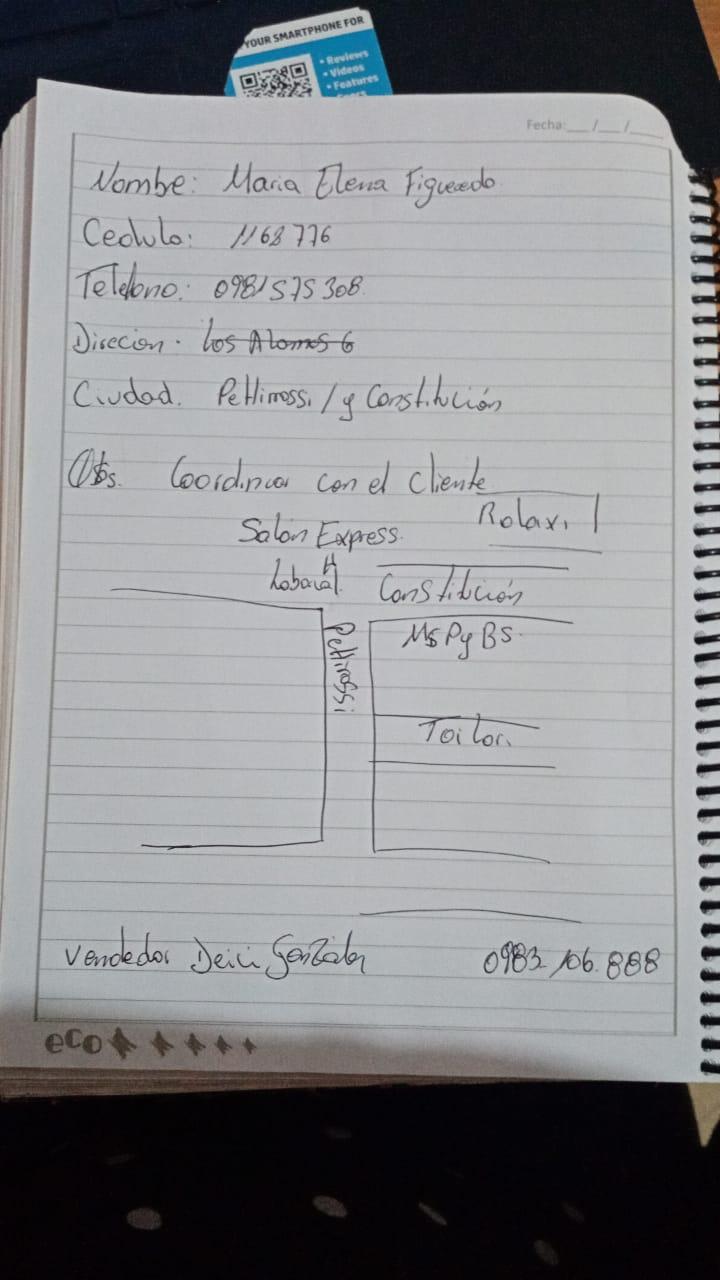 YOUR SMARTPHONE FOR
• Reviews
• Videos
• Features
Fecha: __/__/__
Nombre: Maria Elena Figueredo
Cedula: 1168776
Telefono: 0981575308
Direcion. Los Alamos 6
Ciudad. Pettirossi / y Constitución
Obs. Coordinar con el Cliente
Rolaxi
Salón Express.
Constitución
Pettirossi
MSPyBS.
Vendedor Deisi González
0983.106.888
eco